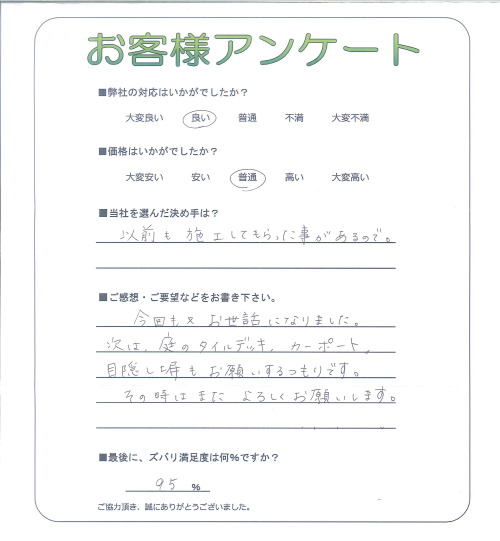 お客様アンケート
■弊社の対応はいかがでしたか？
大変良い 良い 普通 不満 大変不満
■価格はいかがでしたか？
大変安い 安い 普通 高い 大変高い
■当社を選んだ決め手は？
以前も施工してもらった事があるので。
■ご感想・ご要望などをお書き下さい。
今回も又お世話になりました。
次は、庭のタイルデッキ、カーポート、
目隠し塀もお願いするつもりです。
その時はまたよろしくお願いします。
■最後に、ズバリ満足度は何%ですか？
95 %
ご協力頂き、誠にありがとうございました。